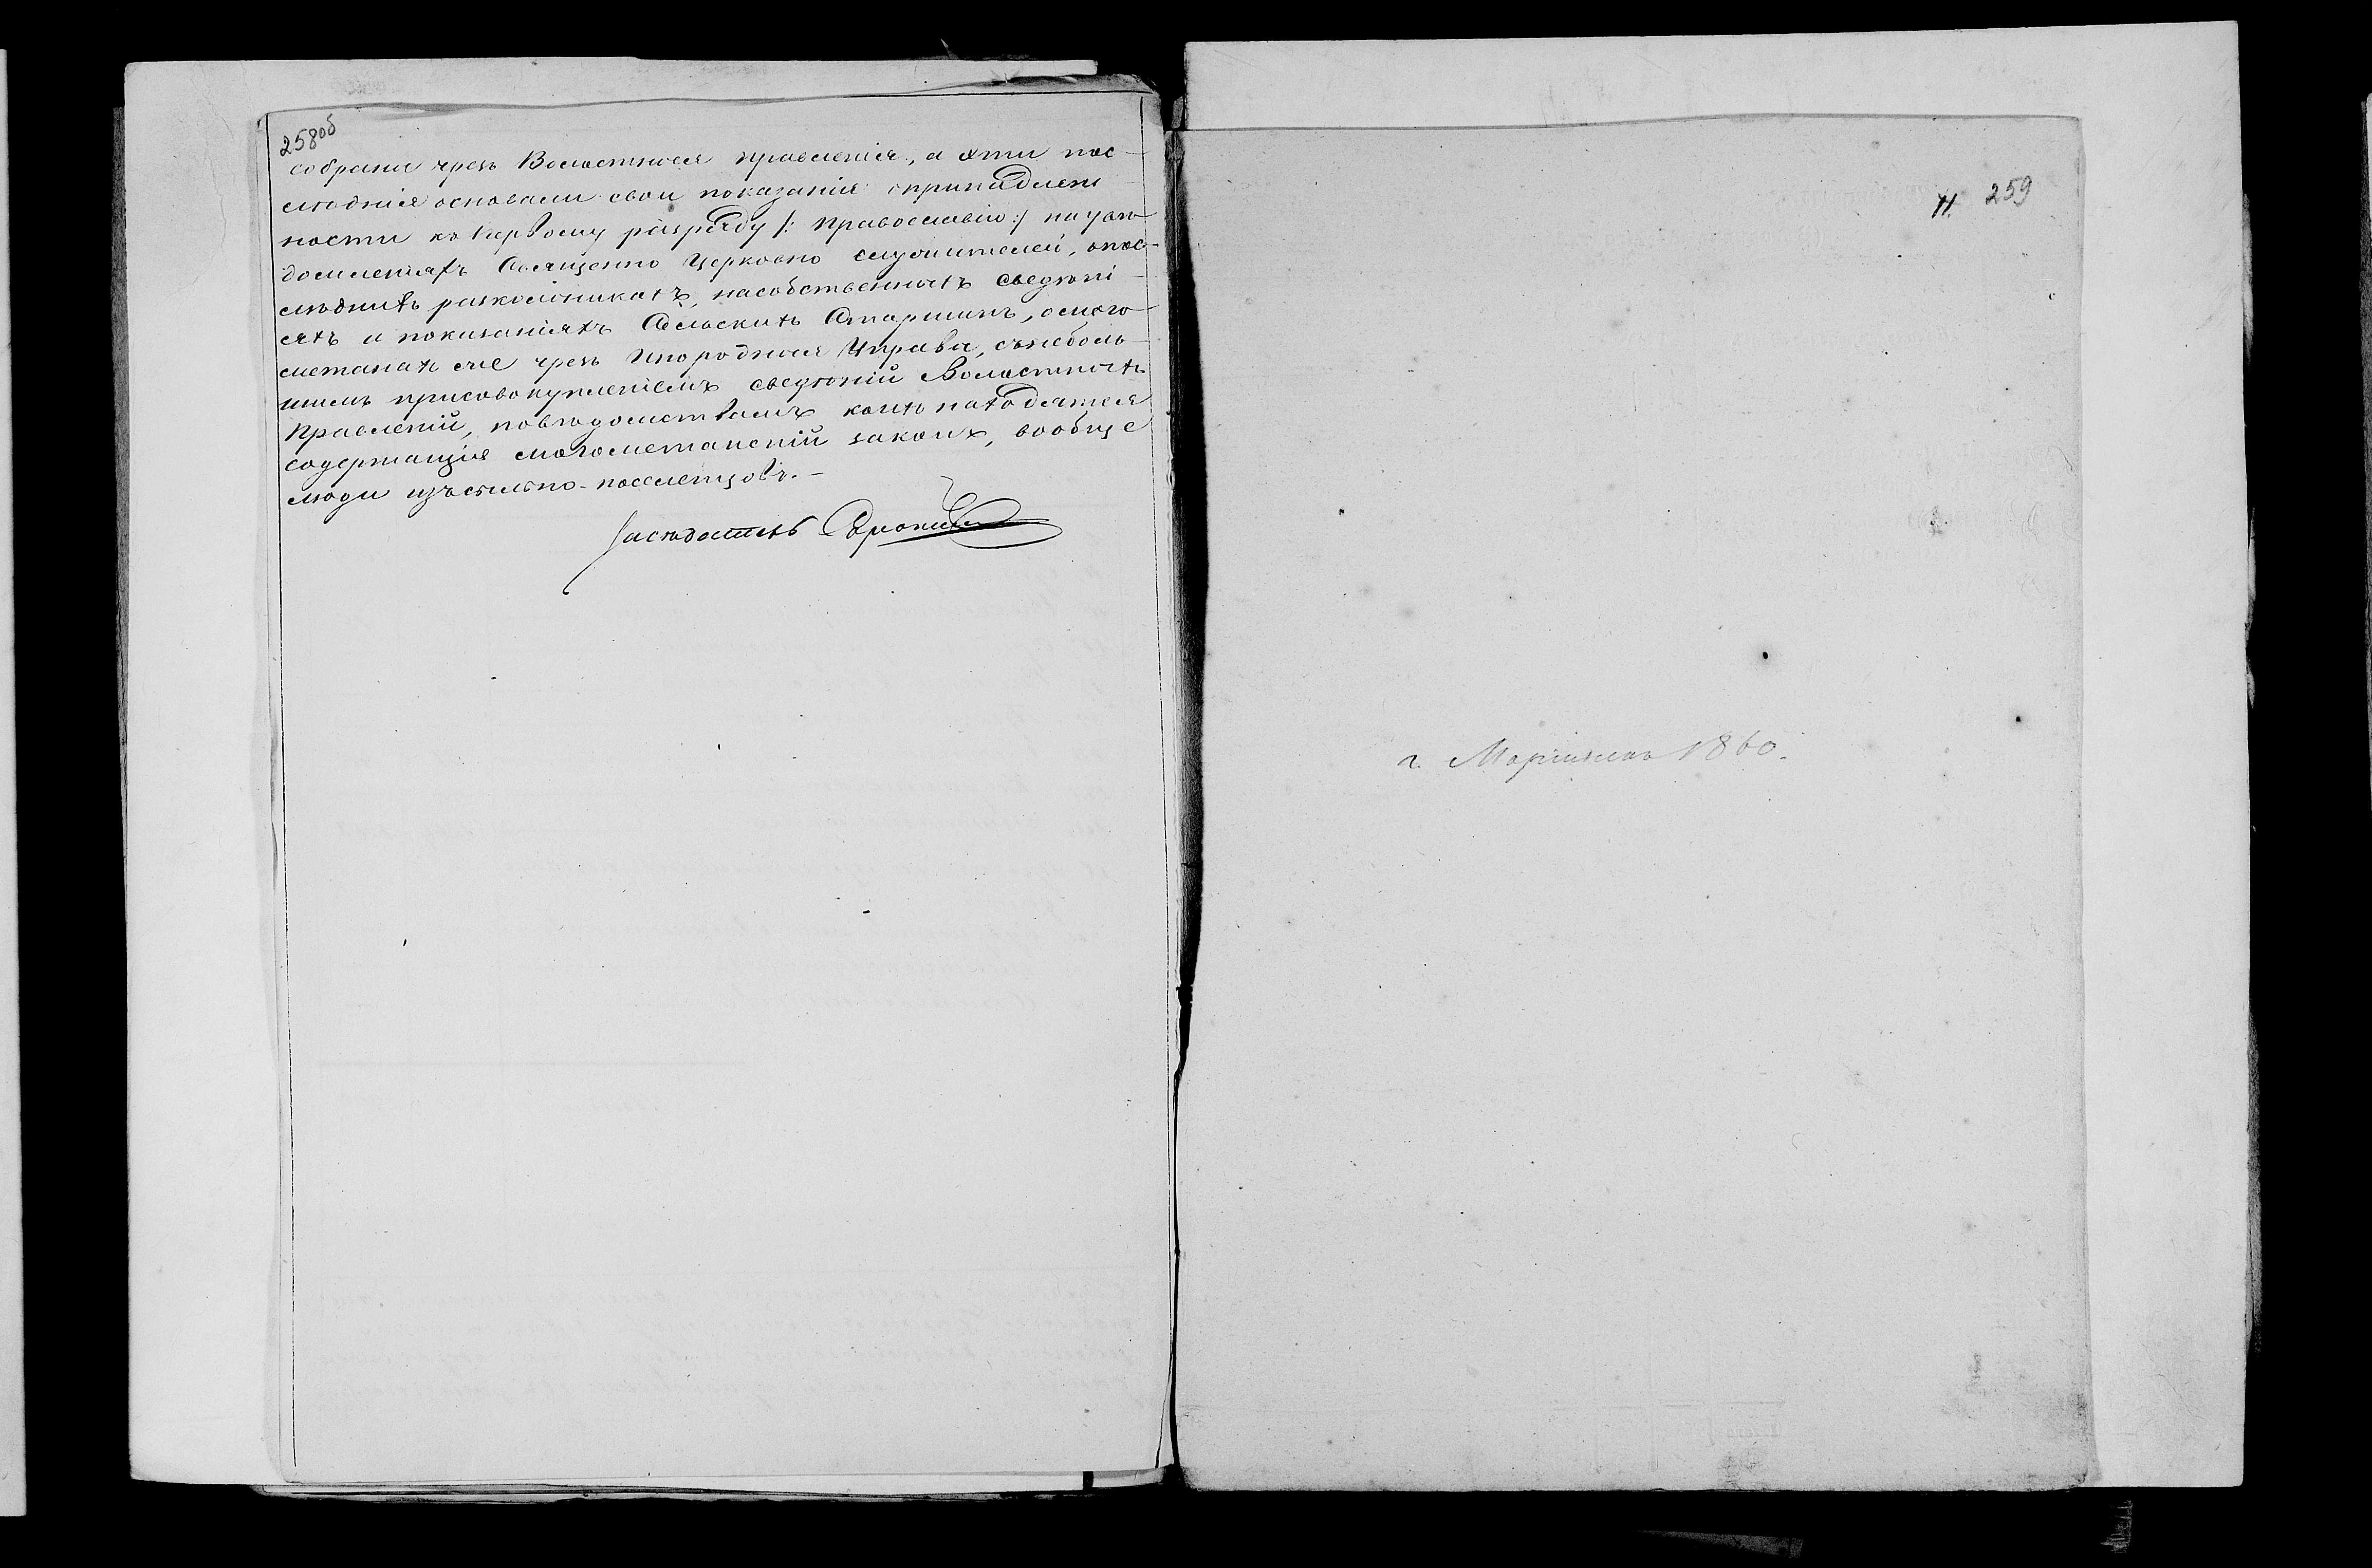 258об
собраны чрезъ Волостныя правленія, а эти пос-
лѣднія основали свои показанія опринадлеж
ности къ первому разряду /: православію :/ на увѣ-
домленіяхъ Священно Церковно служителей, опос-
лѣднихъ раскольникахъ, насобственныхъ сведѣні-
яхъ и показаніяхъ Сельскихъ Старшинъ, омаго-
метанахъ же чрезъ Инородныя Управы, съ неболь-
шимъ присовокупленіемъ сведѣній Волостныхъ
Правленій, повѣдомствамъ коихъ находятся
содержащіе магометанскій законъ, вообще
люди изъ сыльно-поселенцовъ.-
Засѣдатель
259
г. Маріинскъ 1860.